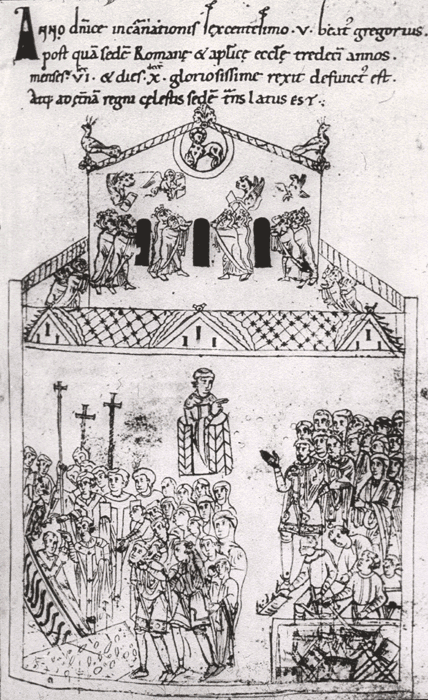 Anno dn̄icę incarn̄ationis sexcentesimo · v · beatꝰ gregorius ·
post quā sedē Romanę & aplīcę ecclę̄ tredeci annos ·
menses · VI · & dies · x · gloriosissime rexit defunctꝰ est ·
Atq; ad et̄nā regni cęlestis sedē tn̄s latus est ·